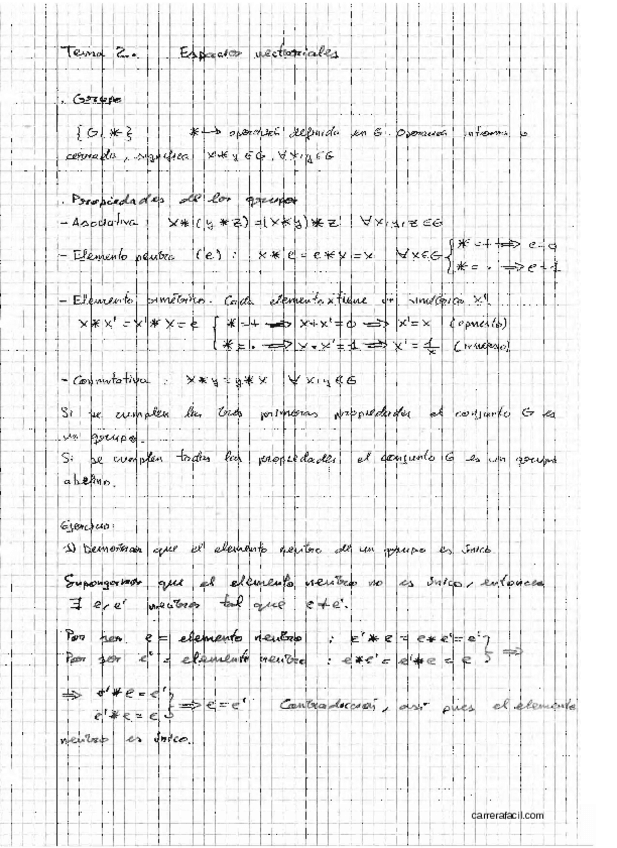 Tema 2. Espacios vectoriales
. Grupo
{G, *} *→ operación definida en G. Operación interna o
cerrada, significa x*y∈G, ∀x,y∈G
. Propiedades de los grupos
- Asociativa x*(y*z)=(x*y)*z ∀x,y,z∈G
- Elemento neutro (e): x*e=e*x=x ∀x∈G { *=+ ⟹ e=0
*=· ⟹ e=1
- Elemento simétrico. Cada elemento x tiene un simétrico x'
x*x'=x'*x=e { *=+ ⟹ x+x'=0 ⟹ x'=x (opuesto)
*=· ⟹ x·x'=1 ⟹ x'=1/x (inverso)
- Conmutativa: x*y=y*x ∀x,y∈G
Si se cumplen las tres primeras propiedades el conjunto G es
un grupo.
Si se cumplen todas las propiedades el conjunto G es un grupo
abelino.
Ejercicio:
1) Demostrar que el elemento neutro de un grupo es único.
Supongamos que el elemento neutro no es único, entonces
∃ e, e' neutros tal que e≠e'.
Por ser e = elemento neutro : e'*e = e*e' = e' }
Por ser e' = elemento neutro : e*e' = e'*e = e } ⟹
⟹ e'*e = e' }
e'*e = e } ⟹ e=e' Contradicción, así pues el elemento
neutro es único.
carrerafacil.com